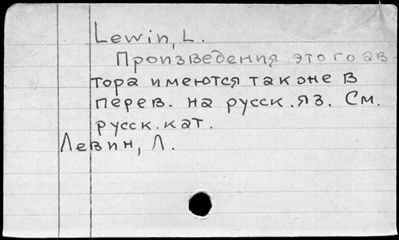 Lewin, L.
Произведения этого ав-
тора имеются также в
перев. на русск. яз. См.
русск. кат.
Левин, Л.